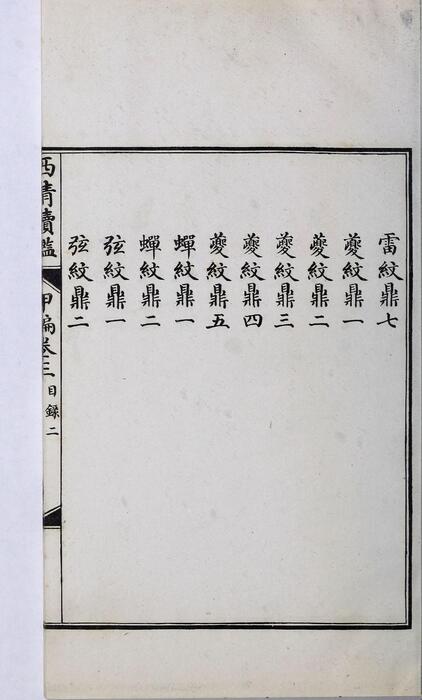 雷紋鼎七
夔紋鼎一
夔紋鼎二
夔紋鼎三
夔紋鼎四
夔紋鼎五
蟬紋鼎一
蟬紋鼎二
弦紋鼎一
弦紋鼎二
西清續鑑 甲編卷三 目錄 二